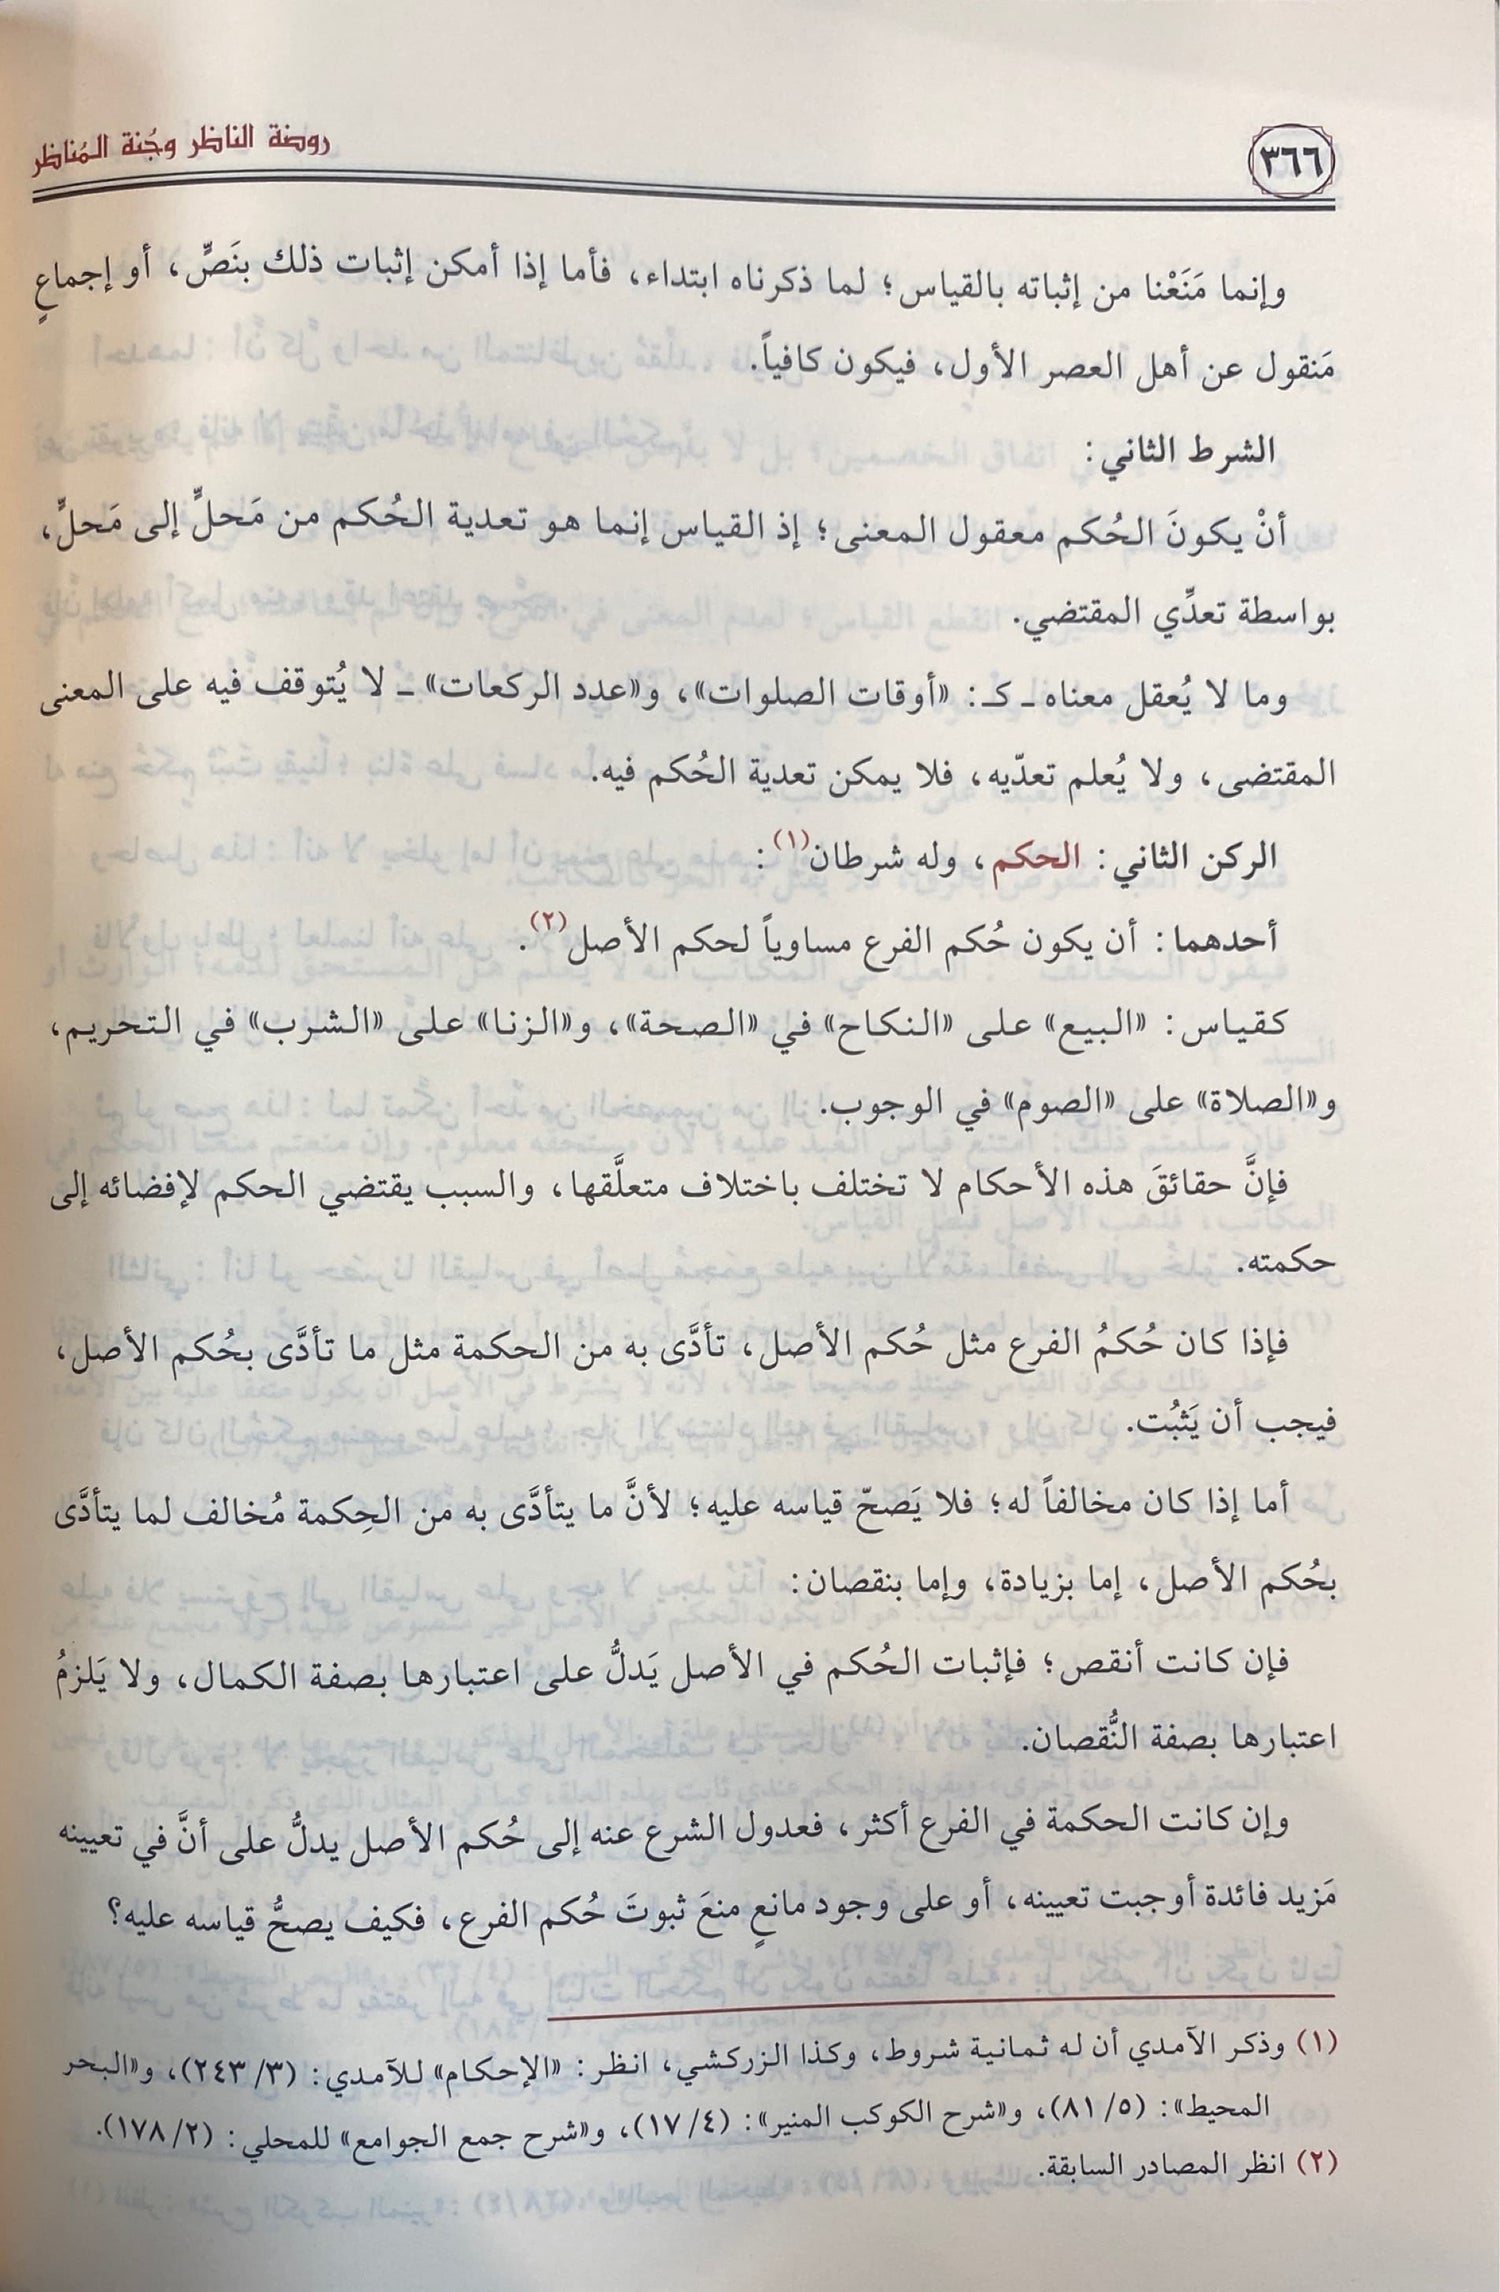 روضة الناظر وجُنة المُناظر
٣٦٦
وإنما مَنَعْنا من إثباته بالقياس؛ لما ذكرناه ابتداء، فأما إذا أمكن إثبات ذلك بنَصٍّ، أو إجماعٍ
مَنقول عن أهل العصر الأول، فيكون كافياً.
الشرط الثاني:
أنْ يكونَ الحُكم معقول المعنى؛ إذ القياس إنما هو تعدية الحُكم من مَحلٍّ إلى مَحلٍّ،
بواسطة تعدِّي المقتضي.
وما لا يُعقل معناه ـ كـ: «أوقات الصلوات»، و«عدد الركعات» ـ لا يُتوقف فيه على المعنى
المقتضى، ولا يُعلم تعدّيه، فلا يمكن تعدية الحُكم فيه.
الركن الثاني: الحكم، وله شرطان(١):
أحدهما: أن يكون حُكم الفرع مساوياً لحكم الأصل(٢).
كقياس: «البيع» على «النكاح» في «الصحة»، و«الزنا» على «الشرب» في التحريم،
و«الصلاة» على «الصوم» في الوجوب.
فإنَّ حقائقَ هذه الأحكام لا تختلف باختلاف متعلَّقها، والسبب يقتضي الحكم لإفضائه إلى
حكمته.
فإذا كان حُكمُ الفرع مثل حُكم الأصل، تأدَّى به من الحكمة مثل ما تأدَّى بحُكم الأصل،
فيجب أن يَثبُت.
أما إذا كان مخالفاً له؛ فلا يَصحّ قياسه عليه؛ لأنَّ ما يتأدَّى به من الحِكمة مُخالف لما يتأدَّى
بحُكم الأصل، إما بزيادة، وإما بنقصان:
فإن كانت أنقص؛ فإثبات الحُكم في الأصل يَدلُّ على اعتبارها بصفة الكمال، ولا يَلزمُ
اعتبارها بصفة النُّقصان.
وإن كانت الحكمة في الفرع أكثر، فعدول الشرع عنه إلى حُكم الأصل يدلُّ على أنَّ في تعيينه
مَزيد فائدة أوجبت تعيينه، أو على وجود مانعٍ منعَ ثبوتَ حُكم الفرع، فكيف يصحُّ قياسه عليه؟
(١) وذكر الآمدي أن له ثمانية شروط، وكذا الزركشي، انظر: «الإحكام» للآمدي: (٢٤٣/٣)، و«البحر
المحيط»: (٨١/٥)، و«شرح الكوكب المنير»: (١٧/٤)، و«شرح جمع الجوامع» للمحلي: (١٧٨/٢).
(٢) انظر المصادر السابقة.